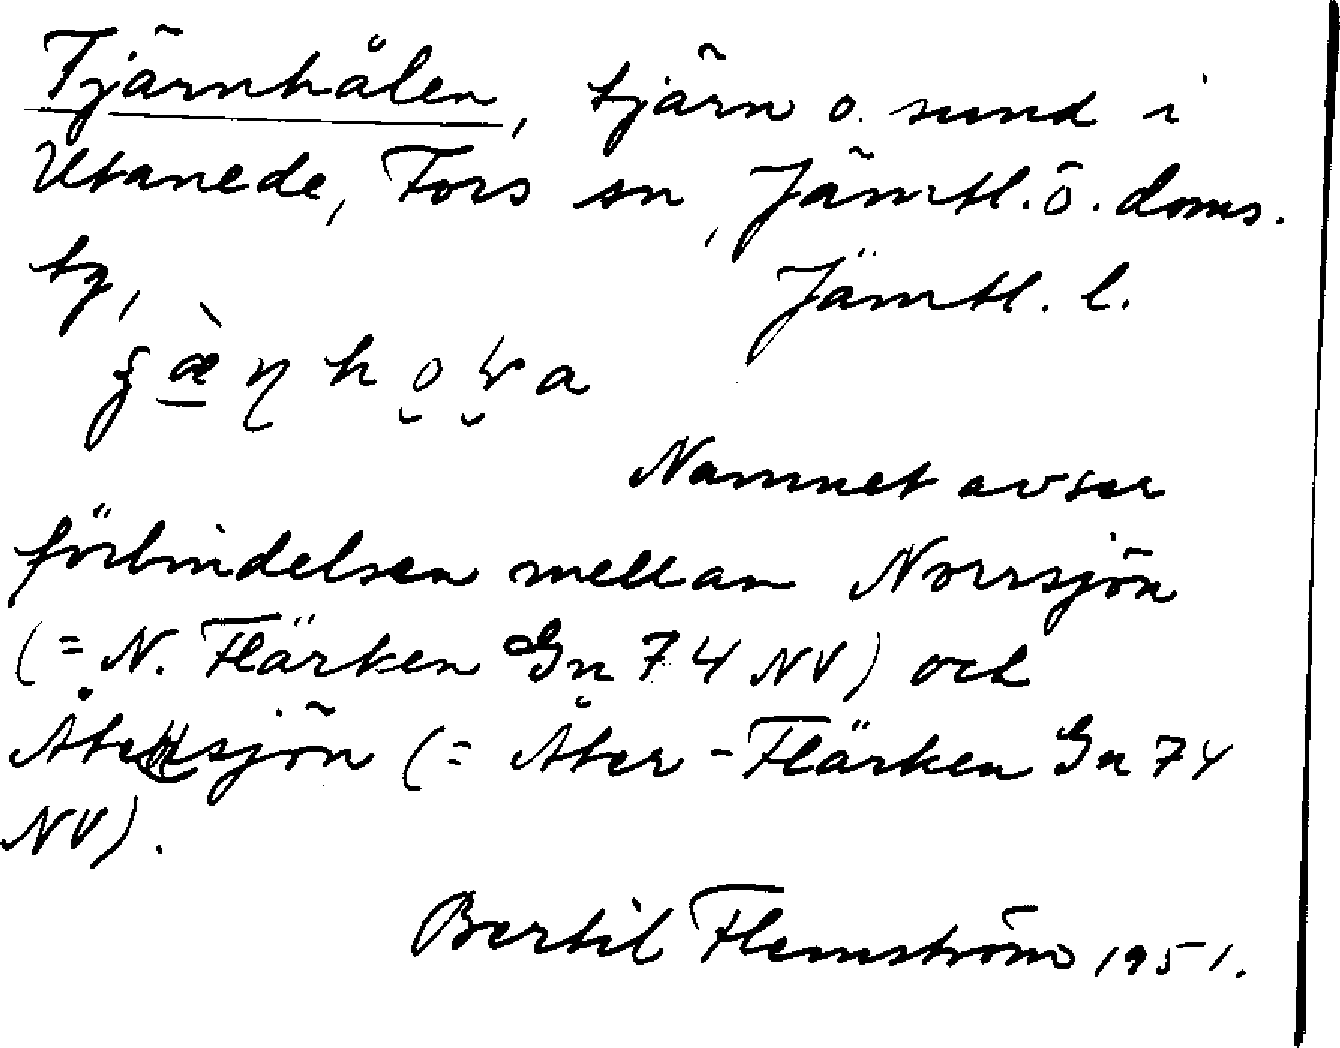 Tjärnhålen, tjärn o. sund i
Utanede, Fors sn, Jämtl. ö. doms.
tg, Jämtl. l.
Namnet avser
förbindelsen mellan Norrsjön
(= N. Flärken Gn 74 NV) och
Återsjön (= Åter-Flärken Gn 74
NV).
Bertil Flemström 1951.